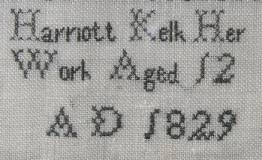 Harriott Kelk Her
Work Aged 12
A D 1829